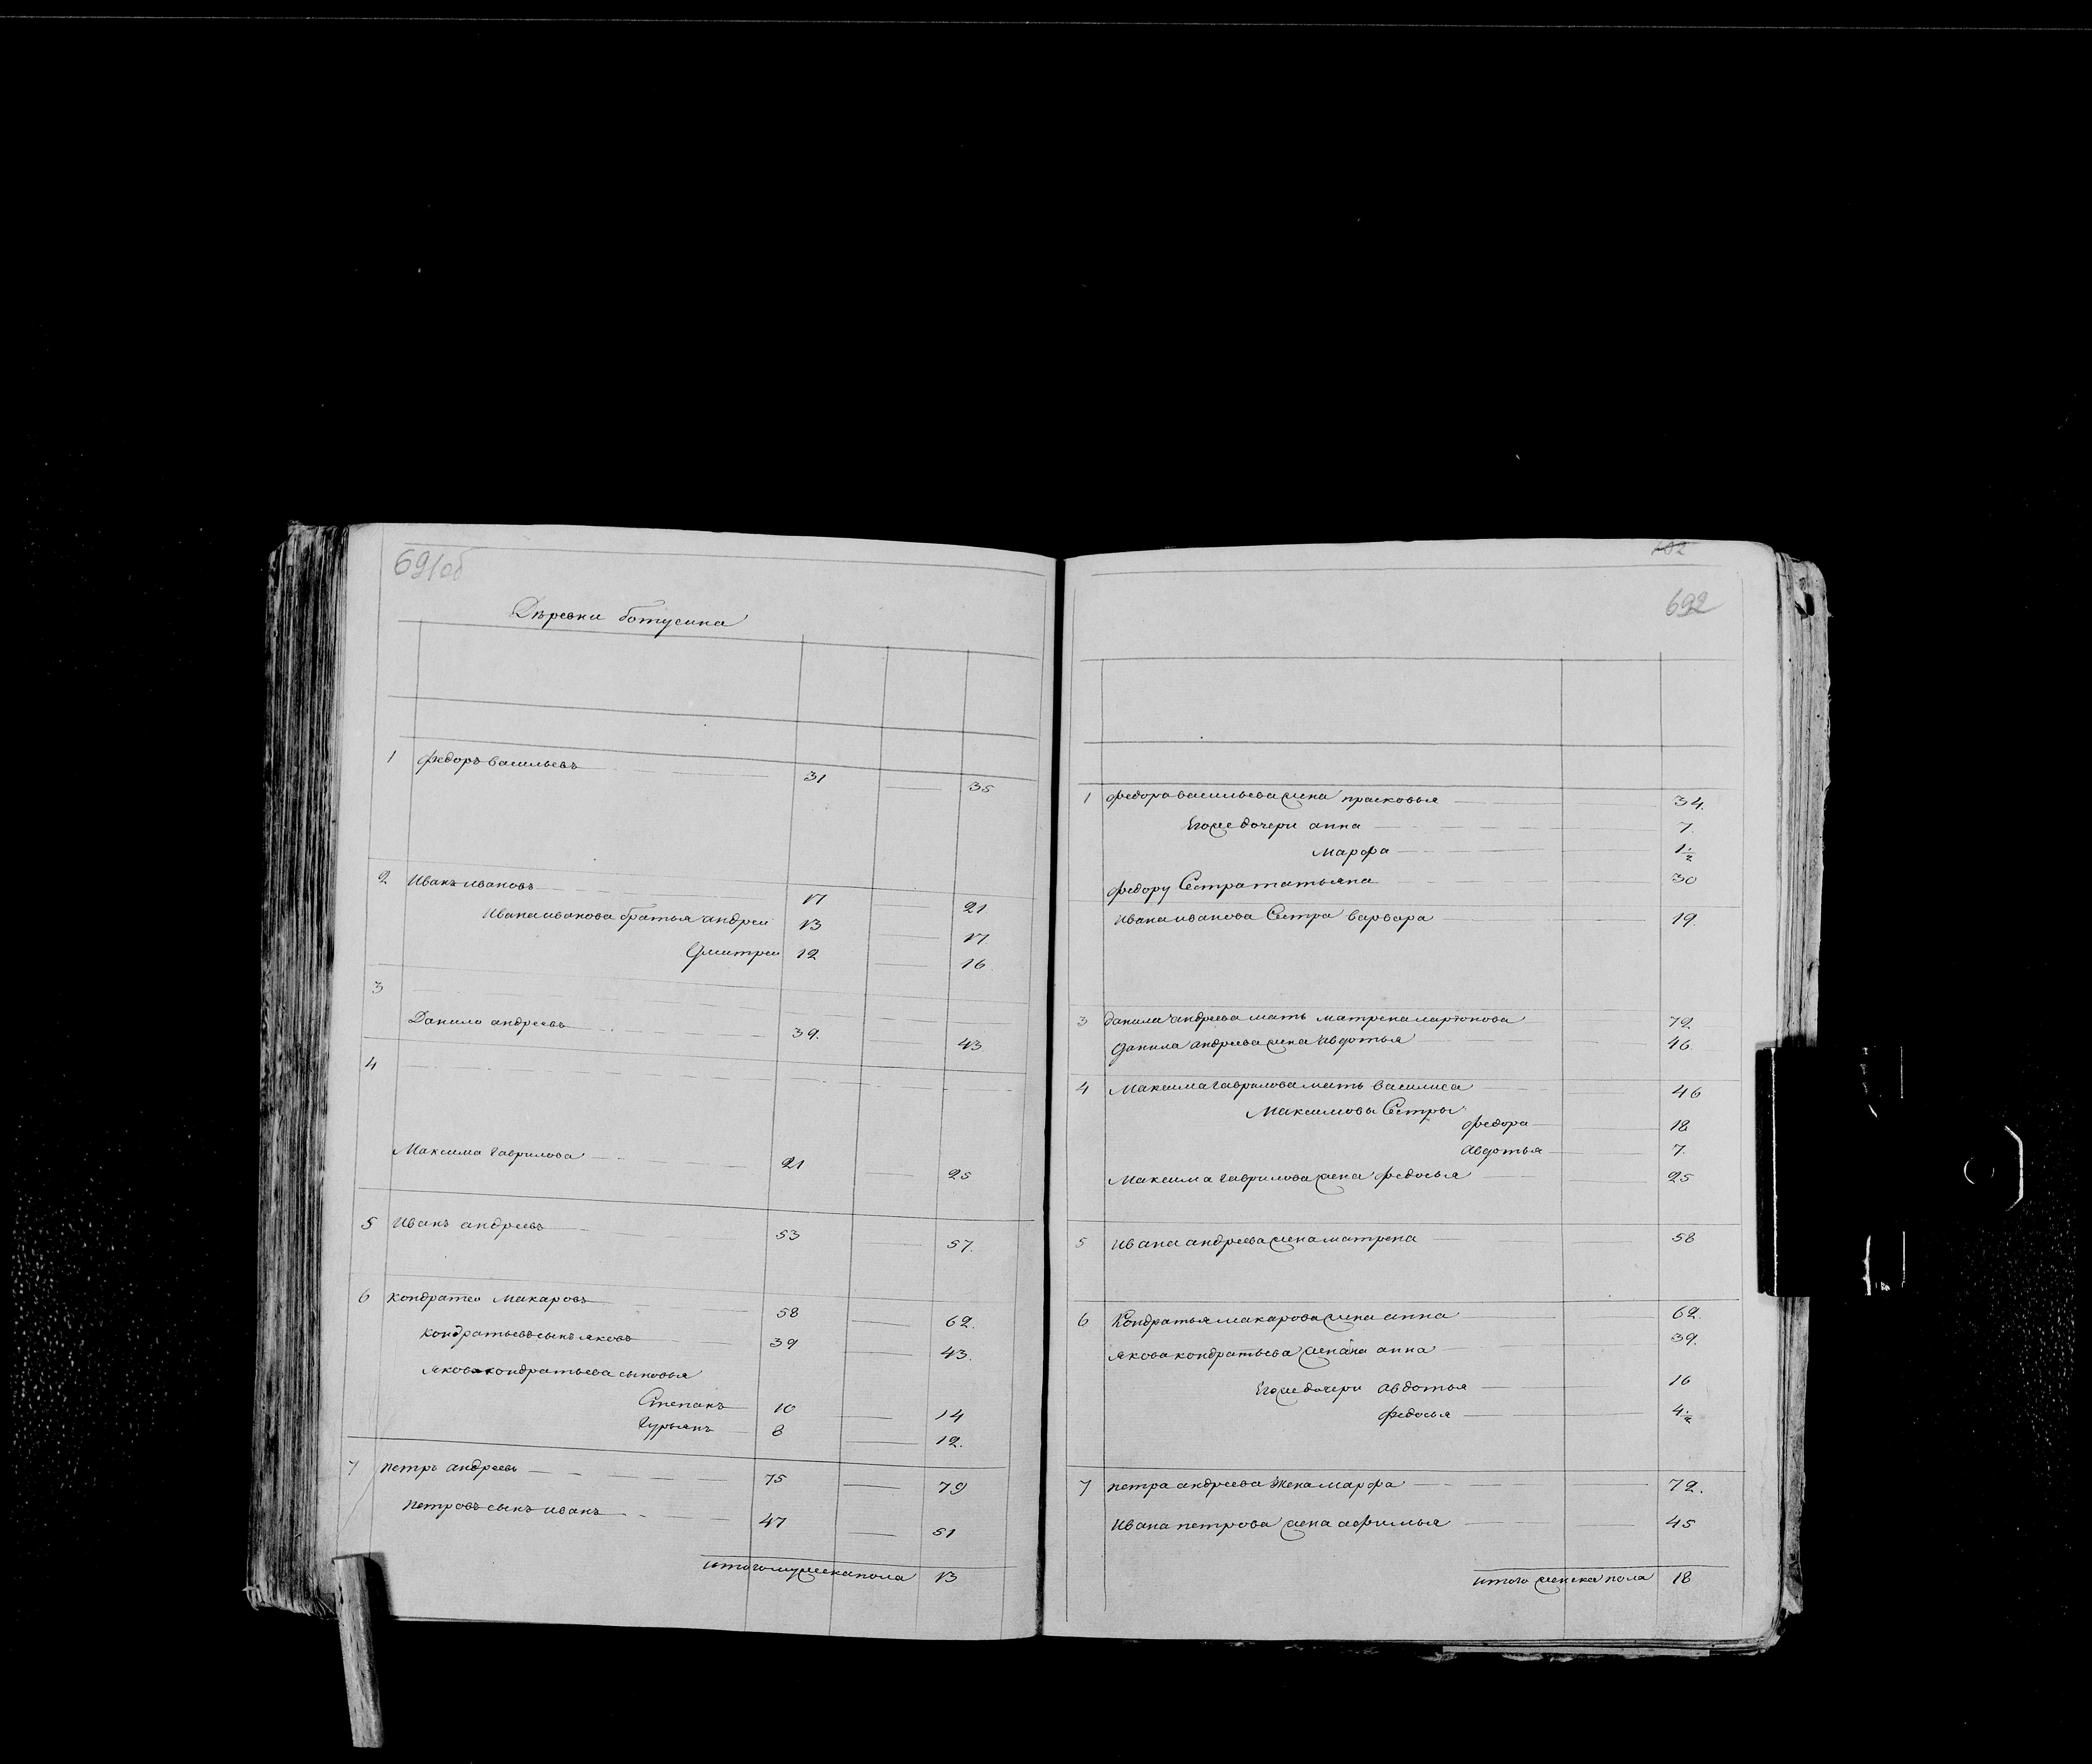 691об
Деревни ботусина
1 федоръ васильевъ 31 35
2 Иванъ ивановъ 17 21
Ивана иванова братья андреи 13 17
Дмитреи 12 16
3
Данило андреевъ 39. 43
4
Максима гаврилова 21 25
5 Иванъ андреевъ 53 57.
6 кондратеи Макаровъ 58 62.
кондратьевъ сынъ яковъ 39 43.
якова кондратьева сыновья
Степанъ 10 14
Гурьянъ 8 12.
7 петръ андреевъ 75 79
петровъ сынъ иванъ 47 51
итого мужеска пола 13
692
1 федора васильева жена прасковья 34.
Егоже дочери анна 7.
Марфа 1½
федору Сестра татьяна 30
Ивана иванова Сестра варвара 19.
3 данила андреева мать матрена 72
Данила андреева жена Авдотья 46.
4 Максима гаврилова мать василиса 46
Максимовы Сестры
федора 18
авдотья 7.
Максима гаврилова жена федосья 25
5 Ивана андреева жена матрена 58
6 Кондратья макарова жена анна 62.
якова кондратьева жена анна 39.
Егоже дочери авдотья 16
федосья 4½
7 петра андреева жена марфа 72.
Ивана петрова жена афимья 45
итого женска пола 18